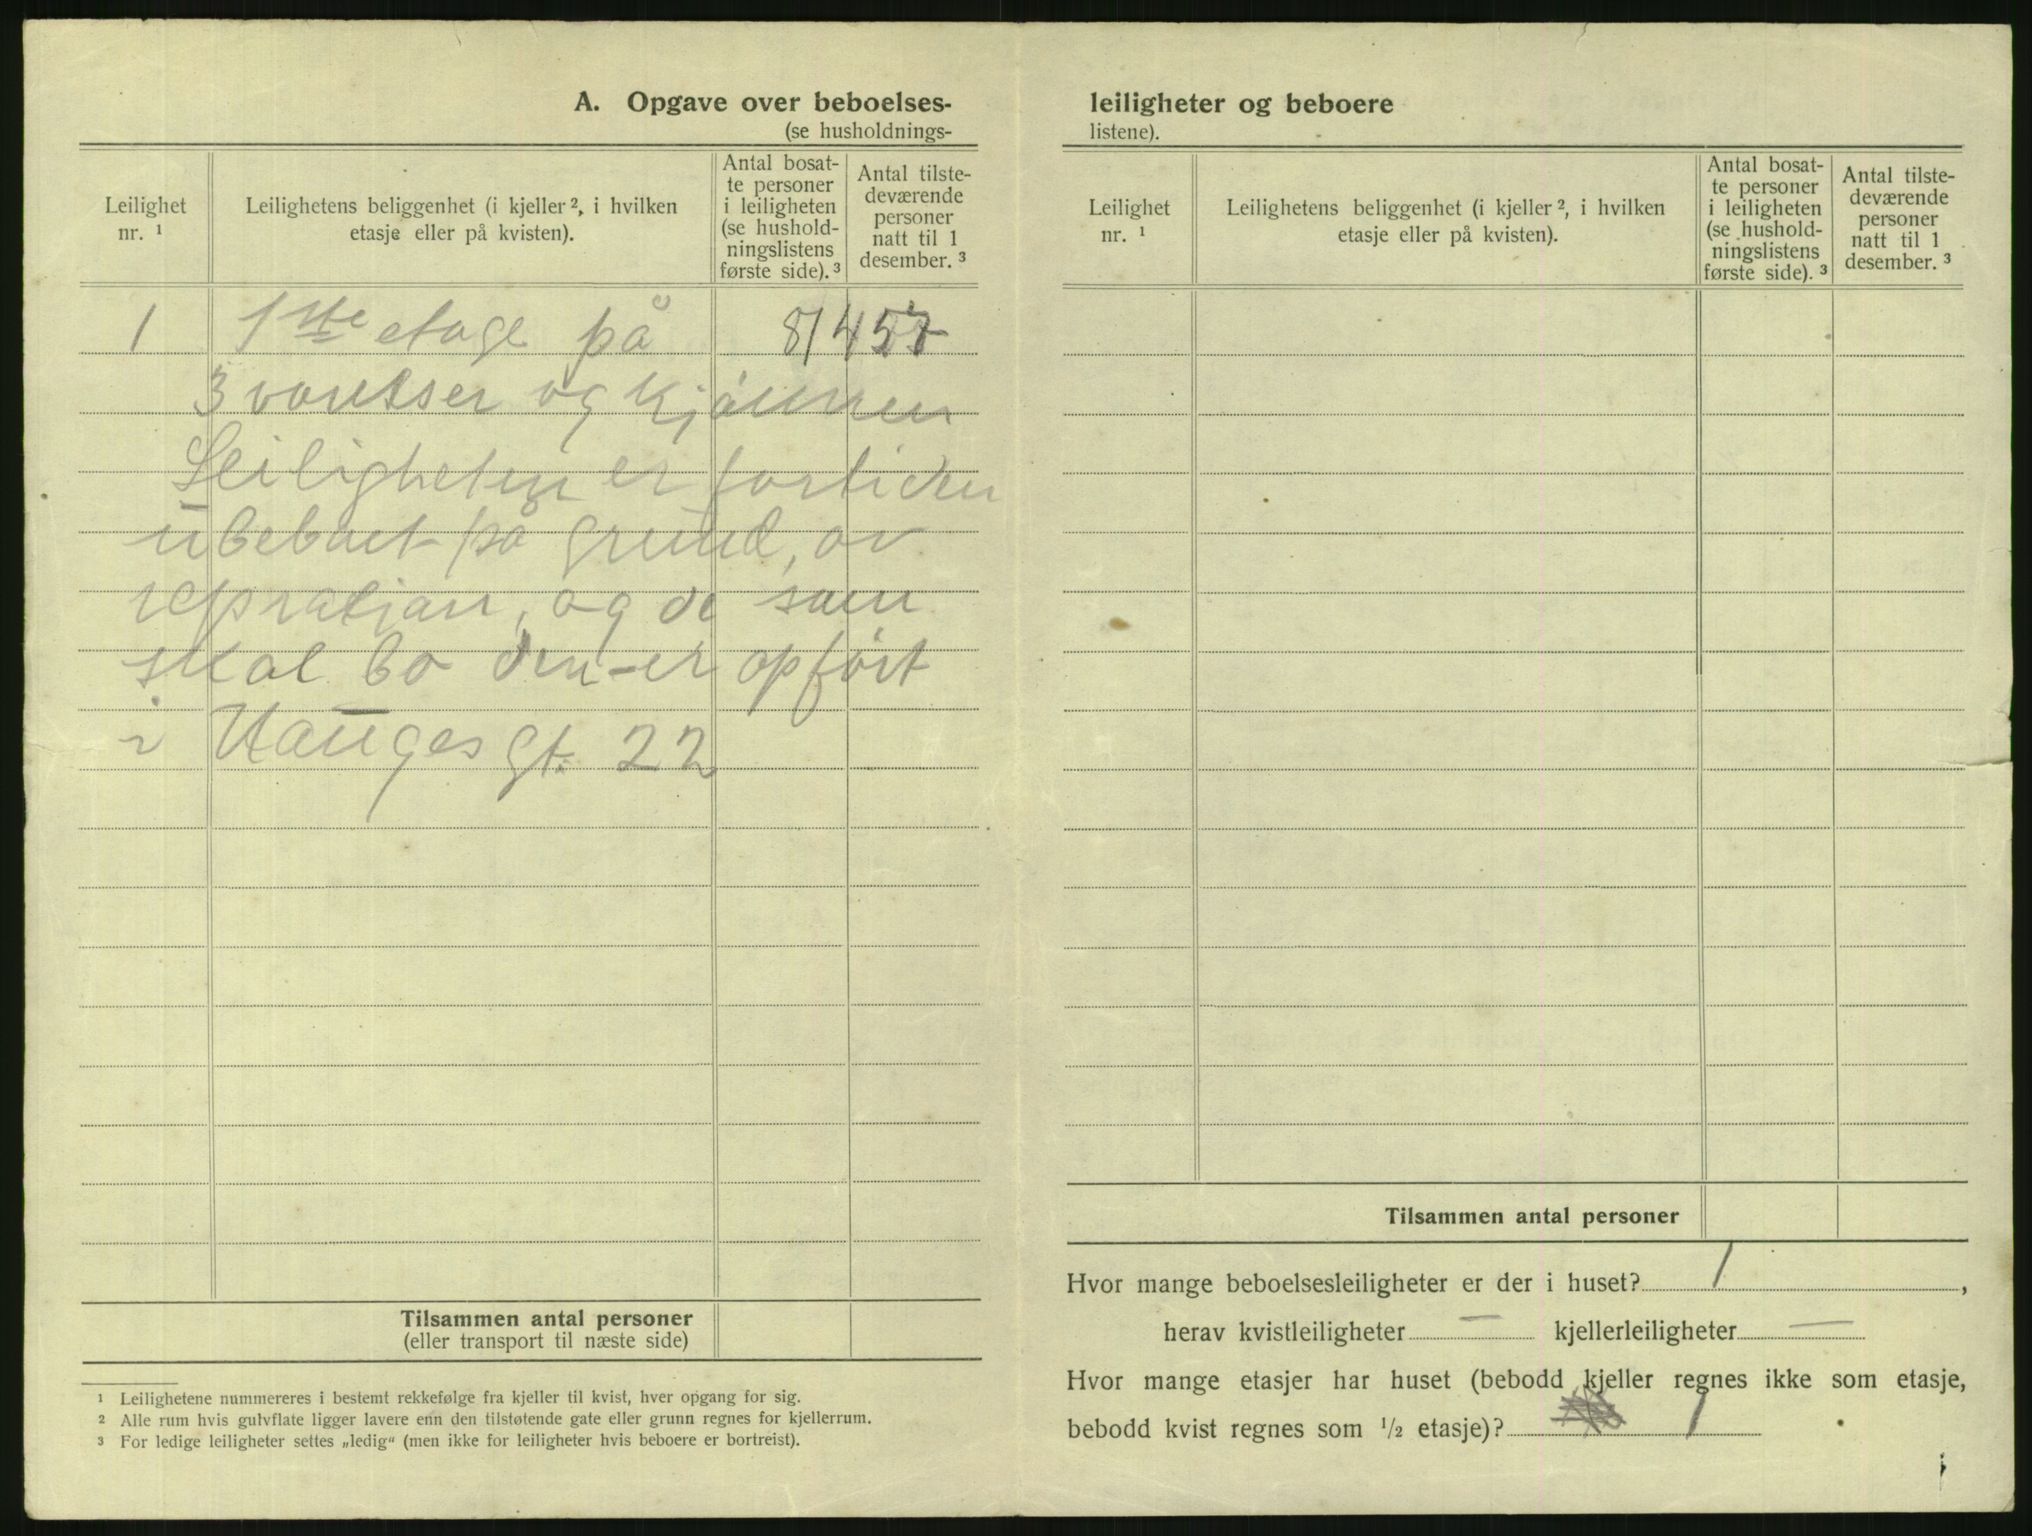 A. Opgave over beboelses-
(se husholdnings-
Leilighet
nr. ¹
Leilighetens beliggenhet (i kjeller ², i hvilken
etasje eller på kvisten).
Antal bosat-
te personer
i leiligheten
(se hushold-
ningslistens
første side). ³
Antal tilste-
deværende
personer
natt til 1
desember. ³
1 1ste etage på
3 varelser og kjönnen
Leiligheten er fortiden
ubeboet på grund, av
repratjon, og de som
skal bo den-er opført
i Hauges gt. 22
Tilsammen antal personer
(eller transport til næste side)
¹ Leilighetene nummereres i bestemt rekkefølge fra kjeller til kvist, hver opgang for sig.
² Alle rum hvis gulvflate ligger lavere enn den tilstøtende gate eller grunn regnes for kjellerrum.
³ For ledige leiligheter settes „ledig“ (men ikke for leiligheter hvis beboere er bortreist).
leiligheter og beboere
listene).
Leilighet
nr. ¹
Leilighetens beliggenhet (i kjeller ², i hvilken
etasje eller på kvisten).
Antal bosat-
te personer
i leiligheten
(se hushold-
ningslistens
første side). ³
Antal tilste-
deværende
personer
natt til 1
desember. ³
Tilsammen antal personer
Hvor mange beboelsesleiligheter er der i huset? 1,
herav kvistleiligheter — kjellerleiligheter —
Hvor mange etasjer har huset (bebodd kjeller regnes ikke som etasje,
bebodd kvist regnes som ½ etasje)? 1